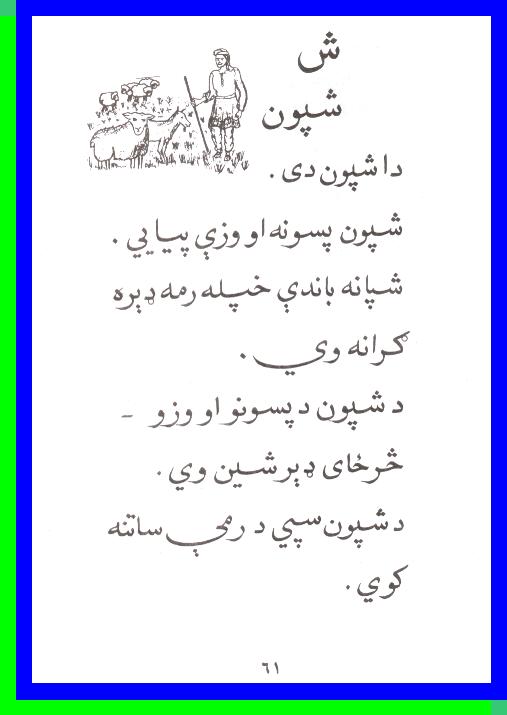 ش
شپون
دا شپون دی .
شپون پسونه او وزې پیایي .
شپانه باندې خپله رمه ډېره
ګرانه وي .
د شپون د پسونو او وزو -
څرځای ډېر شین وي .
د شپون سپي د رمې ساتنه
کوي .
٦١